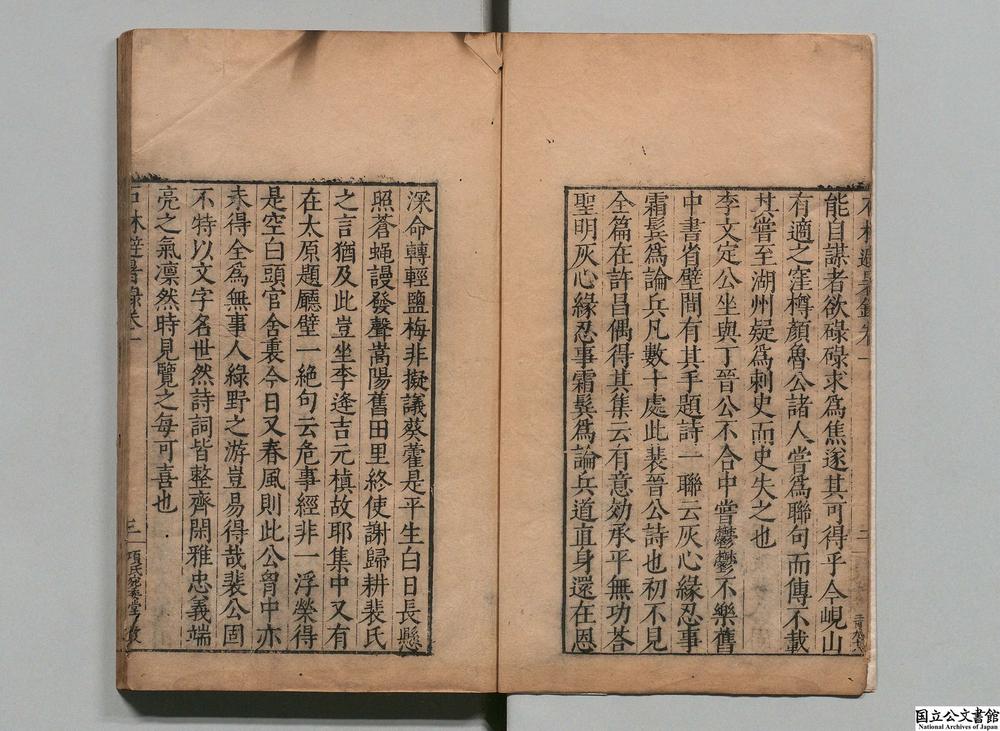 石林避暑錄卷一
能自謀者欲碌碌求為焦遂其可得乎今峴山
有適之窪樽顏魯公諸人嘗為聯句而傳不載
其嘗至湖州疑為刺史而史失之也
李文定公坐與丁晉公不合中嘗鬱鬱不樂舊
中書省壁間有其手題詩一聯云灰心緣忍事
霜髩為論兵凡數十處此裴晉公詩也初不見
全篇在許昌偶得其集云有意効承平無功荅
聖明灰心緣忍事霜髩為論兵道直身還在恩
深命轉輕鹽梅非擬議葵藿是平生白日長懸
照蒼蠅謾發聲嵩陽舊田里終使謝歸耕裴氏
之言猶及此豈坐李逢吉元稹故耶集中又有
在太原題廳壁一絕句云危事經非一浮榮得
是空白頭官舍裏今日又春風則此公胷中亦
未得全為無事人綠野之游豈易得哉裴公固
不特以文字名世然詩詞皆整齊閑雅忠義端
亮之氣凛然時見覽之每可喜也
石林避暑錄卷一
三
項氏宛委堂
国立公文書館
National Archives of Japan